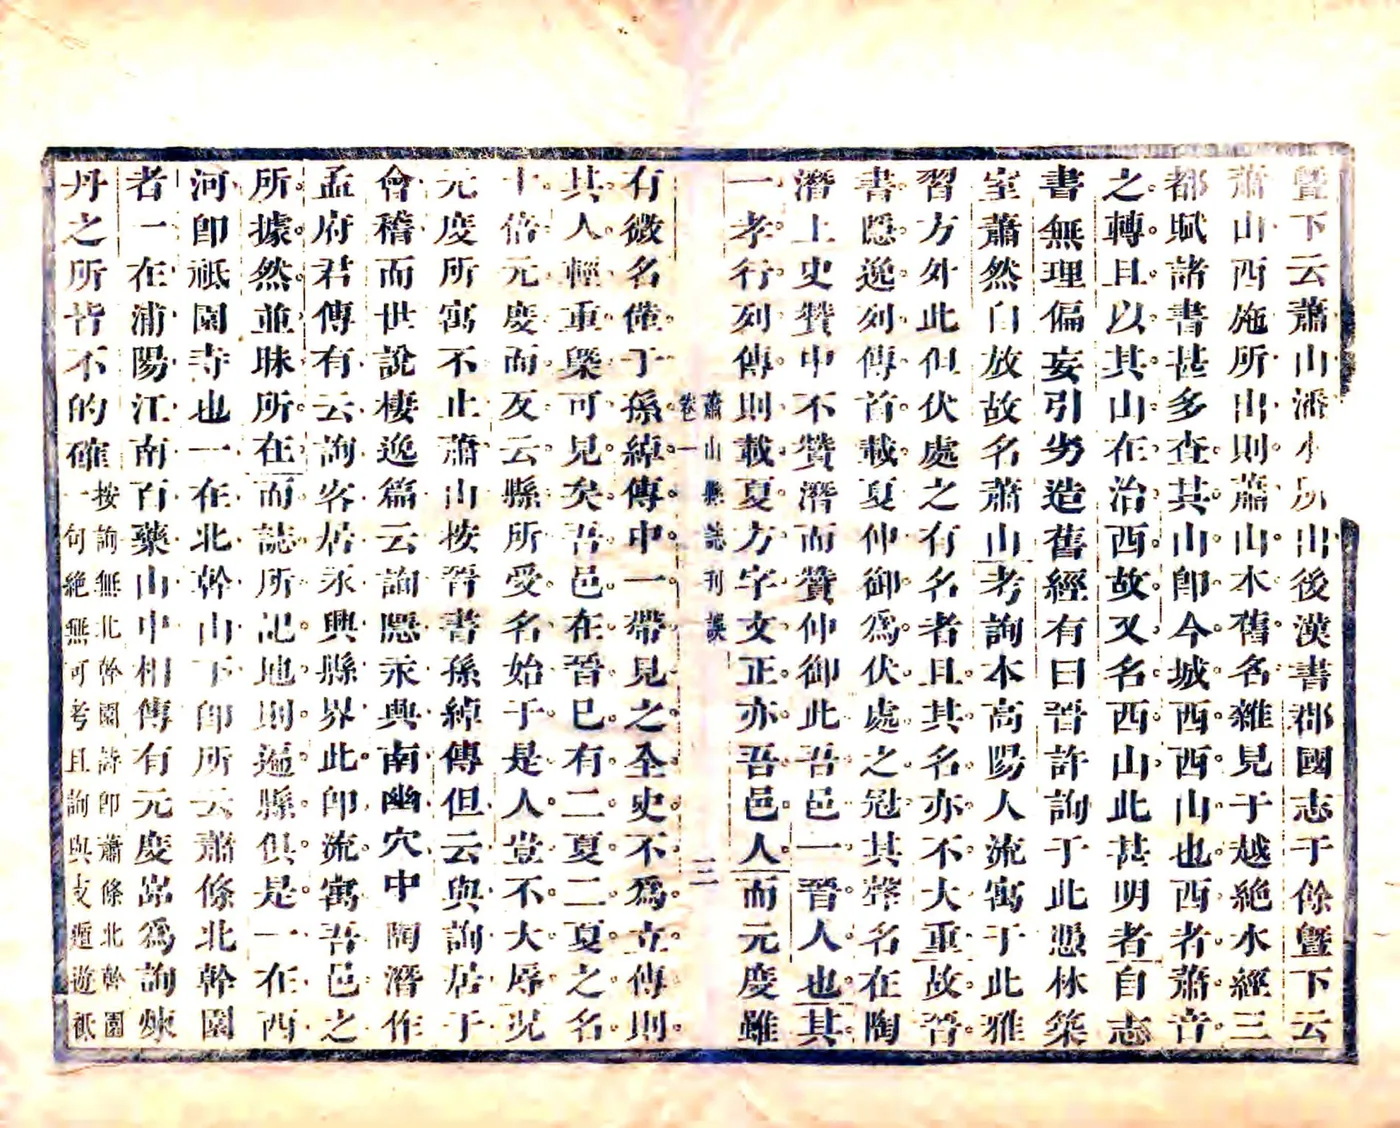 暨下云蕭山潘水所出後漢書郡國志于餘暨下云
蕭山西施所出則蕭山本舊名雜見于越絶水經三
都賦諸書甚多查其山即今城西西山也西者蕭音
之轉且以其山在治西故又名西山此甚明者自志
書無理偏妄引劣造舊經有曰晉許詢于此憑林築
室蕭然自放故名蕭山考詢本高陽人流寓于此雅
習方外此但伏處之有名者且其名亦不大重故晉
書隱逸列傳首載夏仲御爲伏處之冠其聲名在陶
潛上史贊中不贊潛而贊仲御此吾邑一晉人也其
一孝行列傳則載夏方字文正亦吾邑人而元度雖
蕭山縣誌刊誤
卷一
三
有微名僅于孫綽傳中一帶見之全史不爲立傳則
其人輕重槩可見矣吾邑在晉已有二夏二夏之名
十倍元度而反云縣所受名始于是人豈不大辱況
元度所寓不止蕭山按晉書孫綽傳但云與詢居于
會稽而世說棲逸篇云詢隱永興南幽穴中陶潛作
孟府君傳有云詢客居永興縣界此即流寓吾邑之
所據然並昧所在而誌所記地則遍縣俱是一在西
河即祗園寺也一在北幹山下即所云蕭條北幹園
者一在浦陽江南百藥山中相傳有元度嵒爲詢煉
丹之所皆不的確按詢無北幹園詩即蕭條北幹園
一句絶無可考且詢與支遁遊祗